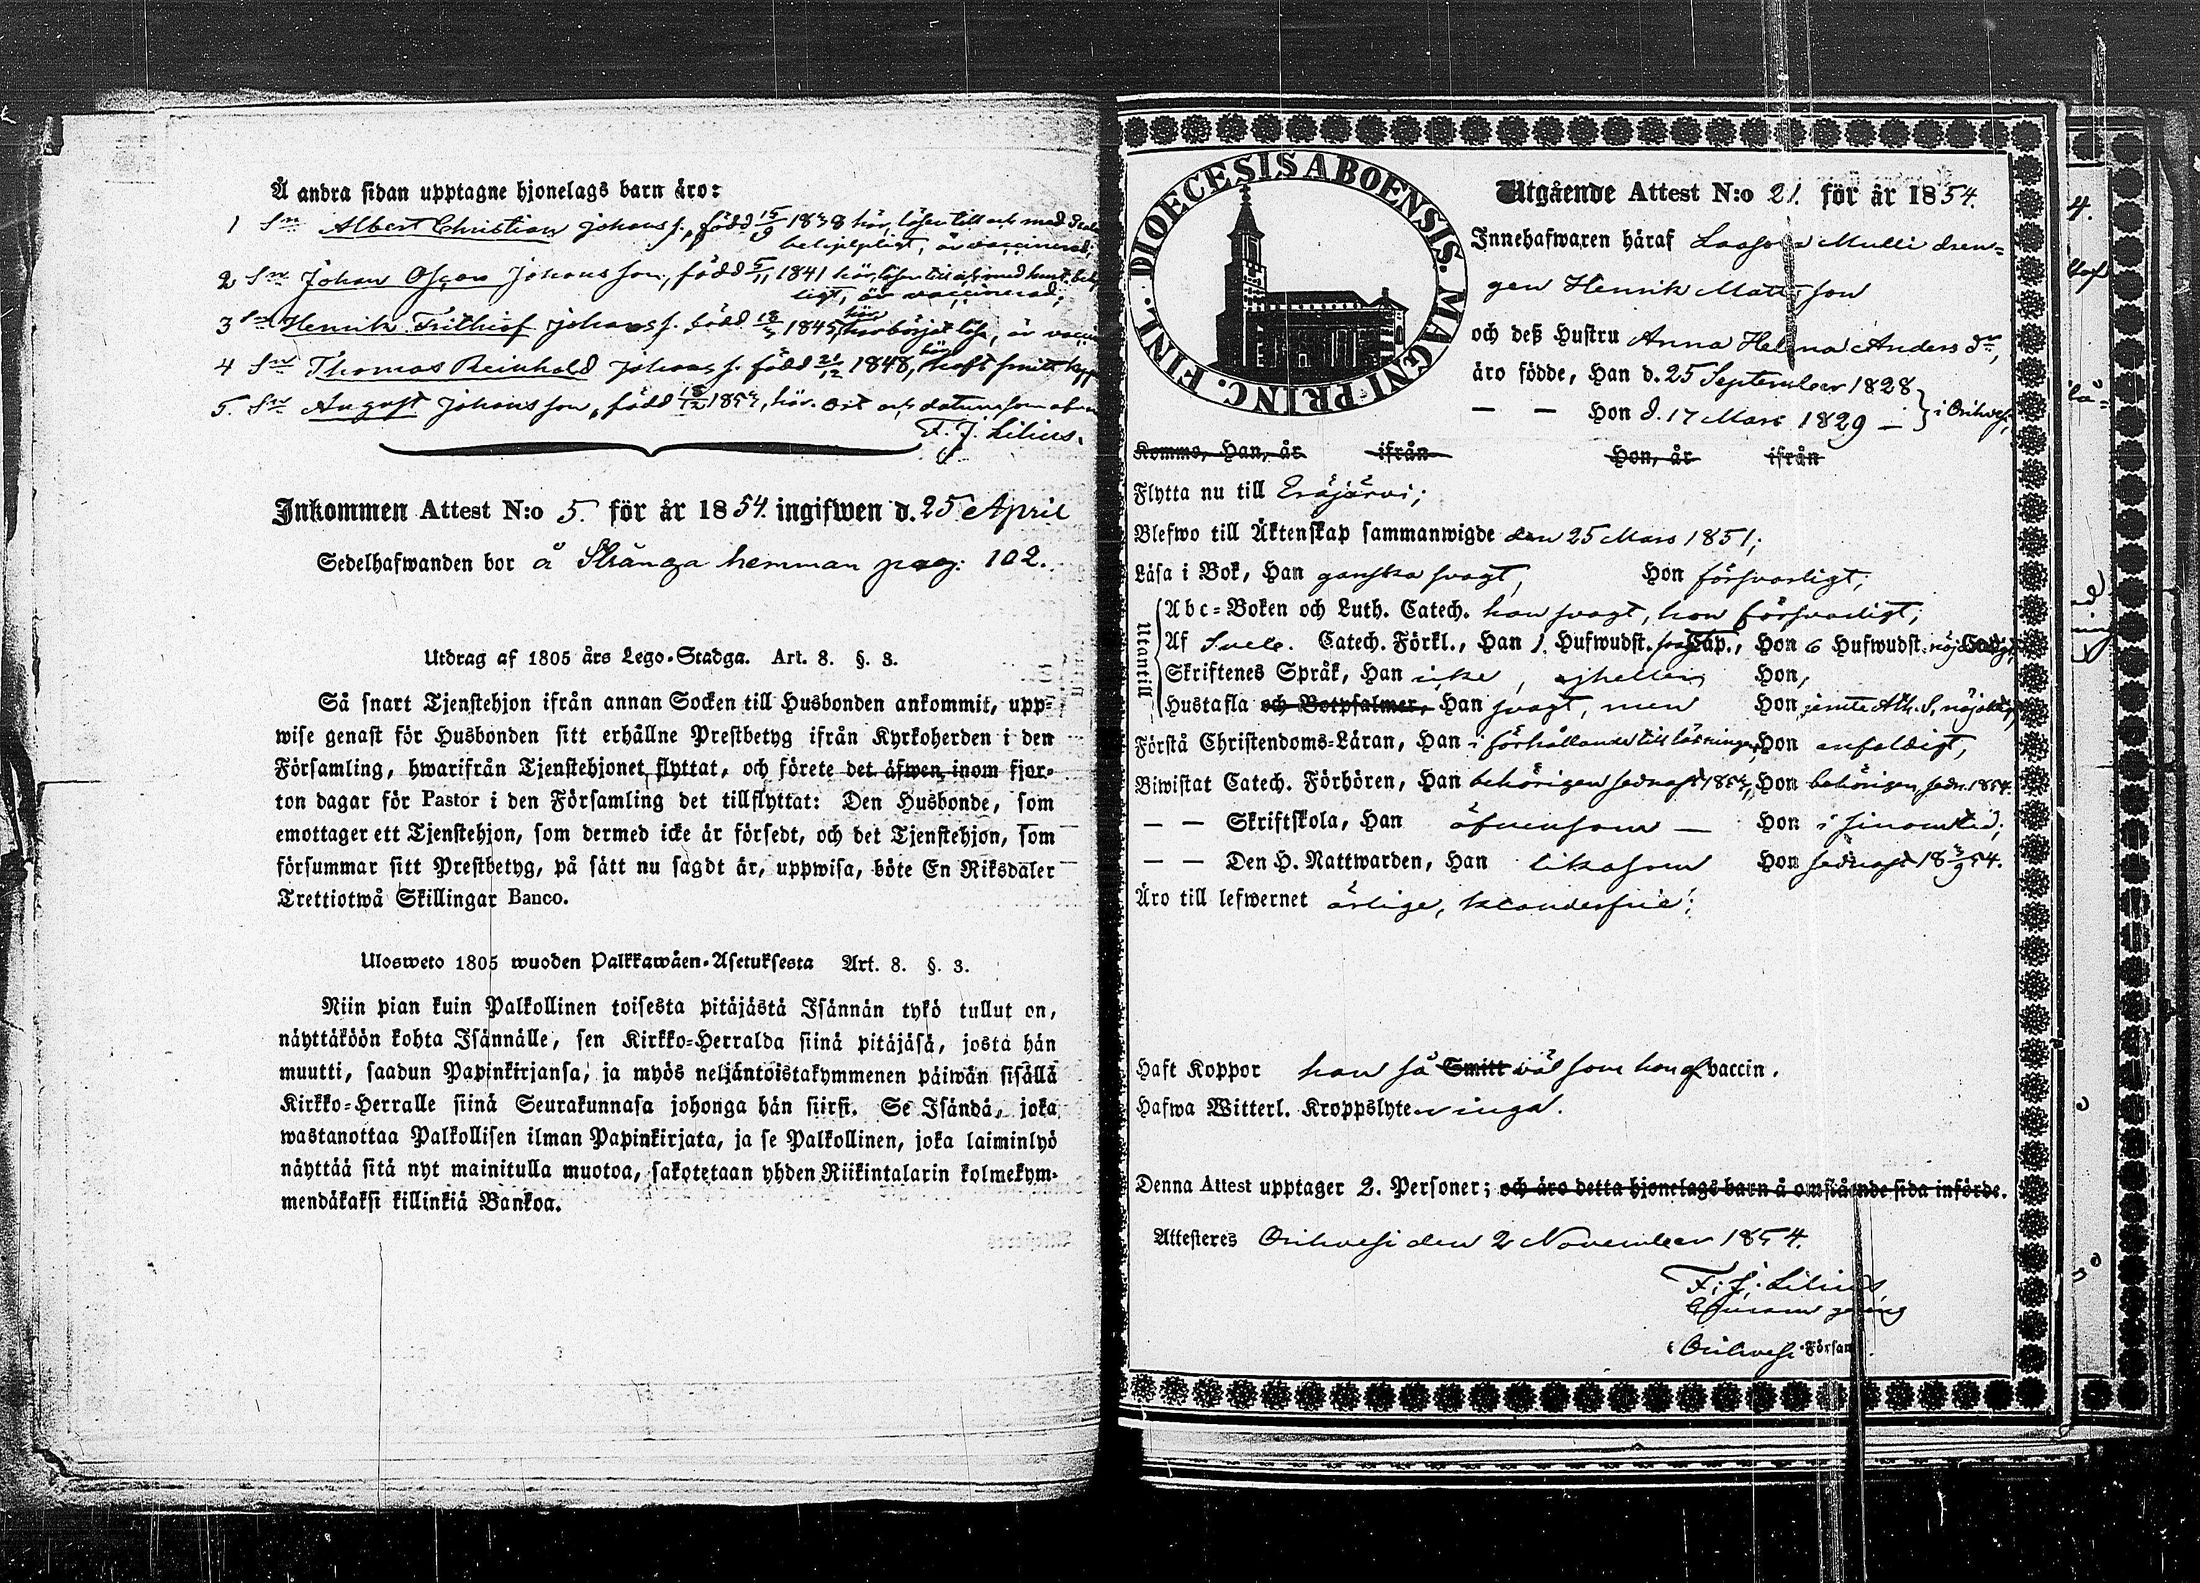 Å andra sidan upptagne hjonelags barn äro:
1 Sn Albert Christian Johanss., född 15/9 1838 här, läser till och med
behjelpligt, är vaccinerad;
2 Sn Johan Oscar Johansson, född 5/11 1841 här, läser till och med hust. behj
ligt, är vaccinerad;
3 Sn Henrik Frithiof Johanss. född 18/ 1845, här har börjat läsa, är vacci
4 Sn Thomas Reinhold Johanss. född 21/12 1848, här haft smitt kopp
5. Sn August Johansson, född 1854, här. Ort och datum som ofvan
F. J. Lilius.
Inkommen Attest N:o 5. för år 1854. ingifwen d. 25 April
Sedelhafwanden bor å Skånga hemman pag: 102.
Utdrag af 1805 års Lego-Stadga. Art. 8. §. 3.
Så snart Tjenstehjon ifrån annan Socken till Husbonden ankommit, upp-
wise genast för Husbonden sitt erhållne Prestbetyg ifrån Kyrkoherden i den
Församling, hwarifrån Tjenstehjonet flyttat, och förete det äfwen inom fjor-
ton dagar för Pastor i den Församling det tillflyttat: Den Husbonde, som
emottager ett Tjenstehjon, som dermed icke är försedt, och det Tjenstehjon, som
försummar sitt Prestbetyg, på sätt nu sagdt är, uppwisa, böte En Riksdaler
Trettiotwå Skillingar Banco.
Ulosweto 1805 wuoden Palkkawäen-Asetuksesta Art. 8. §. 3.
Niin pian kuin Palkollinen toisesta pitäjästä Isännän tykö tullut on,
näyttäköön kohta Isännälle, sen Kirkko-Herralda siinä pitäjäsä, josta hän
muutti, saadun Papinkirjansa, ja myös neljäntoistakymmenen päiwän sisällä
Kirkko-Herralle siinä Seurakunnasa johonga hän siirsi. Se Isändä, joka
wastanottaa Palkollisen ilman Papinkirjata, ja se Palkollinen, joka laiminlyö
näyttää sitä nyt mainitulla muotoa, sakotetaan yhden Riikintalarin kolmekym-
mendäkaksi killinkiä Bankoa.
DIOECESIS ABOENSIS. MAGNI PRINC. FINL.
Utgående Attest N:o 21. för år 1854.
Innehafwaren häraf Laasola Mulli dren-
gen Henrik Mattsson
och deß Hustru Anna Helena Anders dr,
äro födde, Han d. 25 September 1828
— — Hon d. 17 Mars 1829 — } i Orihvesi,
Komme, Han, år ifrån Hon, år ifrån
Flytta nu till Eräjärvi;
Blefwo till Äktenskap sammanwigde den 25 Mars 1851;
Läsa i Bok, Han ganska svagt, Hon försvarligt;
Utantill
Abc-Boken och Luth. Catech. han svagt, hon försvarligt;
Af Sveb. Catech. Förkl., Han 1. Hufwudst. svagt Cap., Hon 6 Hufwudst. nöjaktigt
Skriftenes Språk, Han icke, ejheller Hon,
Hustafla och Botpsalmer, Han svagt, men Hon jemte Ath. S. nöjaktigt
Förstå Christendoms-Läran, Han i förhållande till läsningen, Hon enfaldigt,
Biwistat Catech. Förhören, Han behörigen sednast 1854, Hon behörigen, sedn. 1854.
— — Skriftskola, Han äfvensom — Hon i sinom tid;
— — Den H. Nattwarden, Han likasom Hon sednast 18 3/9 54.
Äro till lefwernet ärlige, klanderfrie;
Haft Koppor han så Smitt väl som hon af vaccin.
Hafwa Witterl. Kroppslyten inga.
Denna Attest upptager 2. Personer; och äro detta hjonelags barn å omstående sida införde.
Attesteres Orihvesi den 2 November 1854.
F. J. Lilius
i Orihvesi Försam